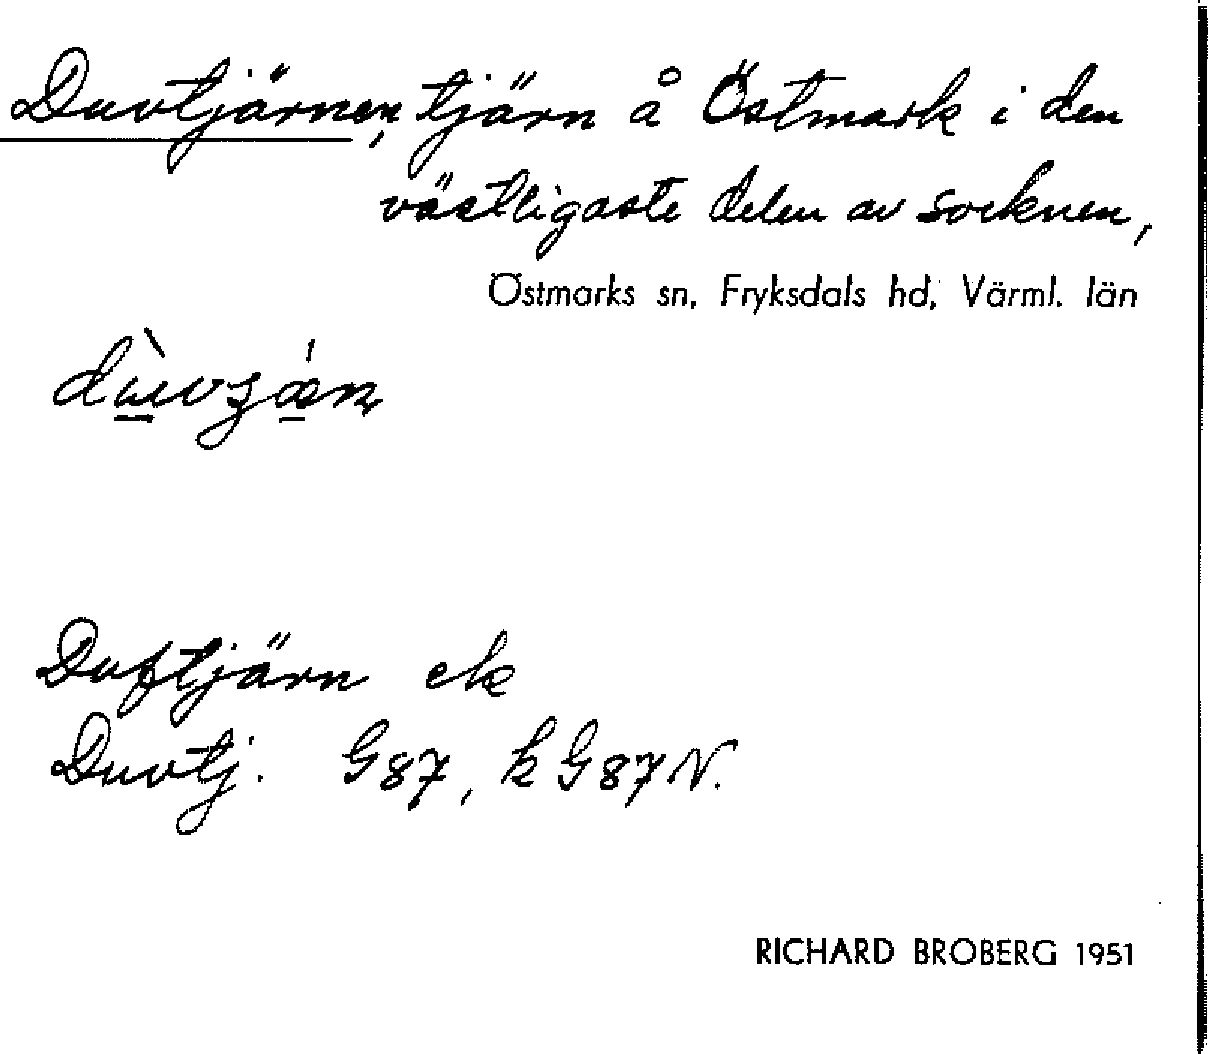 Duvtjärnen, tjärn å Östmark i den
västligaste delen av socknen,
Östmarks sn, Fryksdals hd, Värml. län
Duftjärn ek
Duvtj. G87, k G87 N.
RICHARD BROBERG 1951